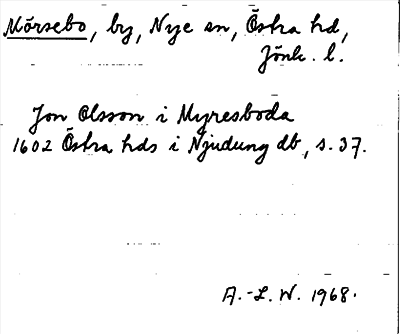 Mörsebo, by, Nye sn, Östra hd,
Jönk. l.
Jon Olsson i Myresboda
1602 Östra hds i Njudung db, s. 37.
A.-L. W. 1968.